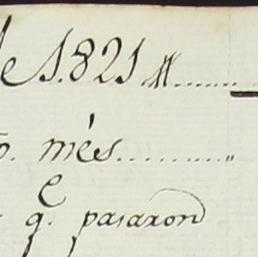 de 1.821 //.......
p. més..........„
e
q. pasaron